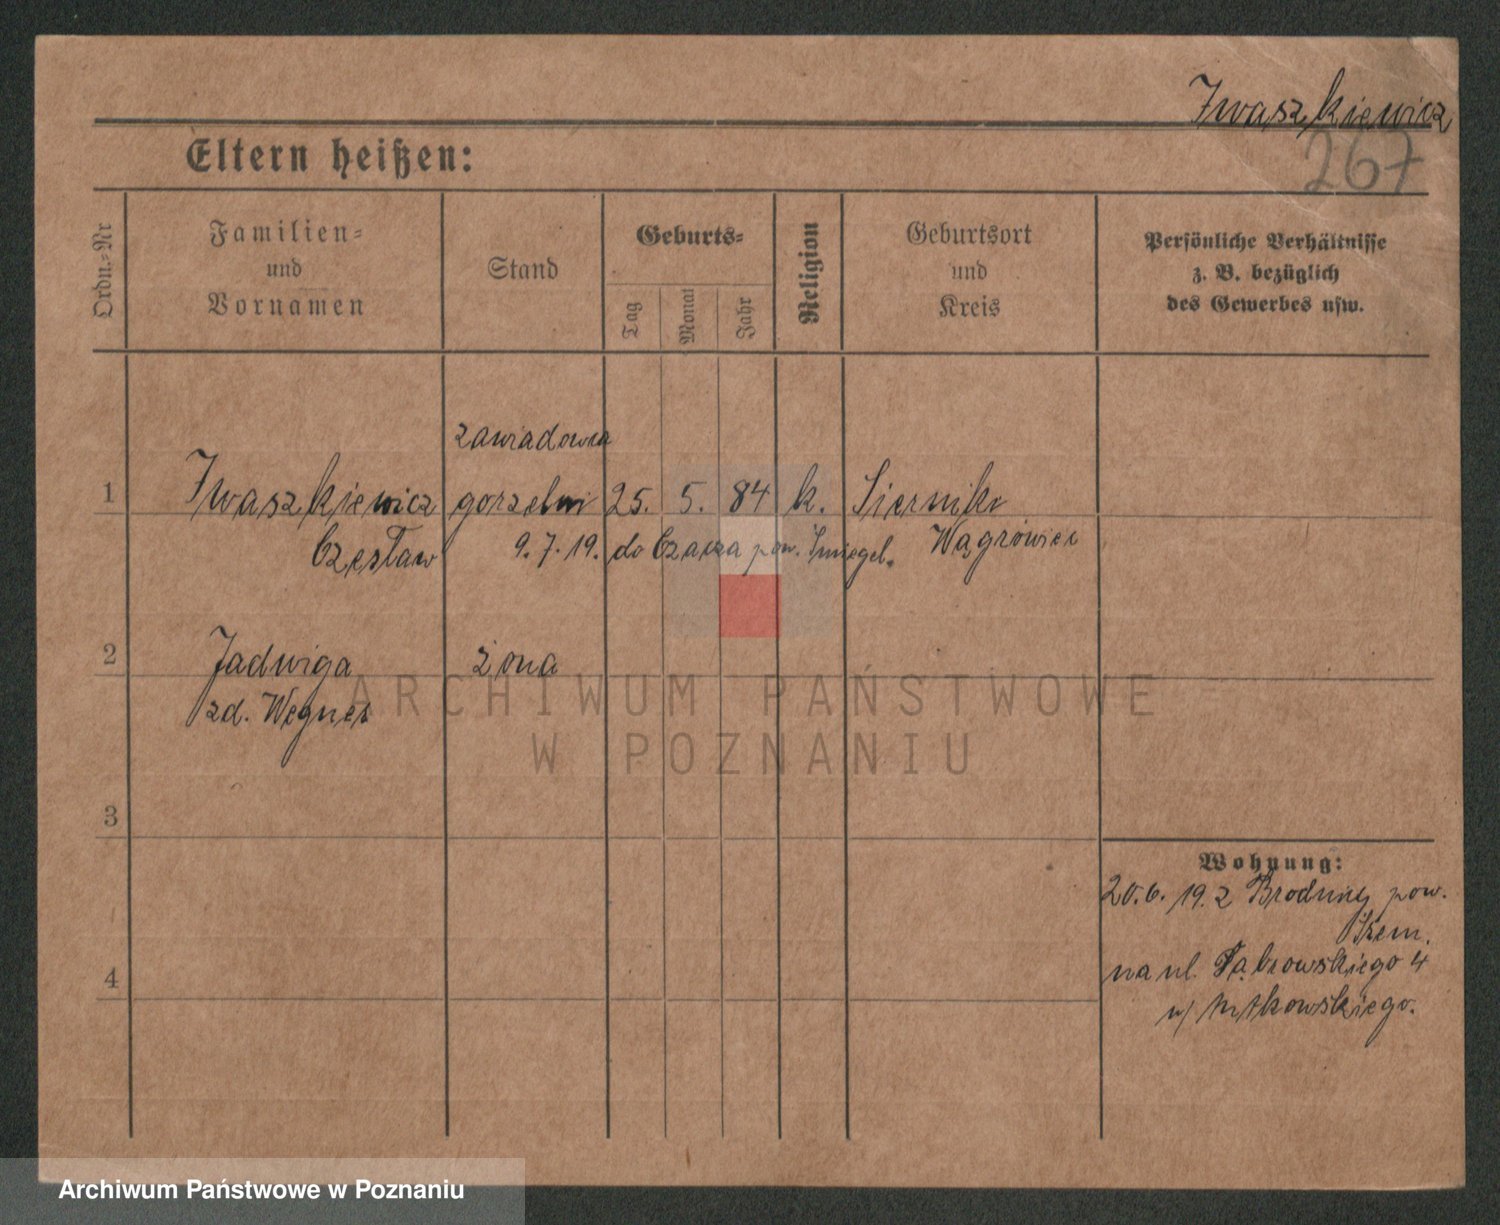 Iwaszkiewicz
267
Eltern heißen:
Ordn.-Nr
Familien-
und
Vornamen
Stand
Geburts-
Tag
Monat
Jahr
Religion
Geburtsort
und
Kreis
Persönliche Verhältnisse
z. B. bezüglich
des Gewerbes usw.
zawiadowca
1 Iwaszkiewicz gorzelni 25. 5. 84 k. Sierniki
Czesław 9.7.19. do Czacza pow. Śmiegel. Wągrówiec
2 Jadwiga żona
zd. Wegner
ARCHIWUM PAŃSTWOWE
W POZNANIU
3
Wohnung:
20.6.19. z Brodnicy pow.
Śrem.
na ul. Dąbrowskiego 4
4
Archiwum Państwowe w Poznaniu